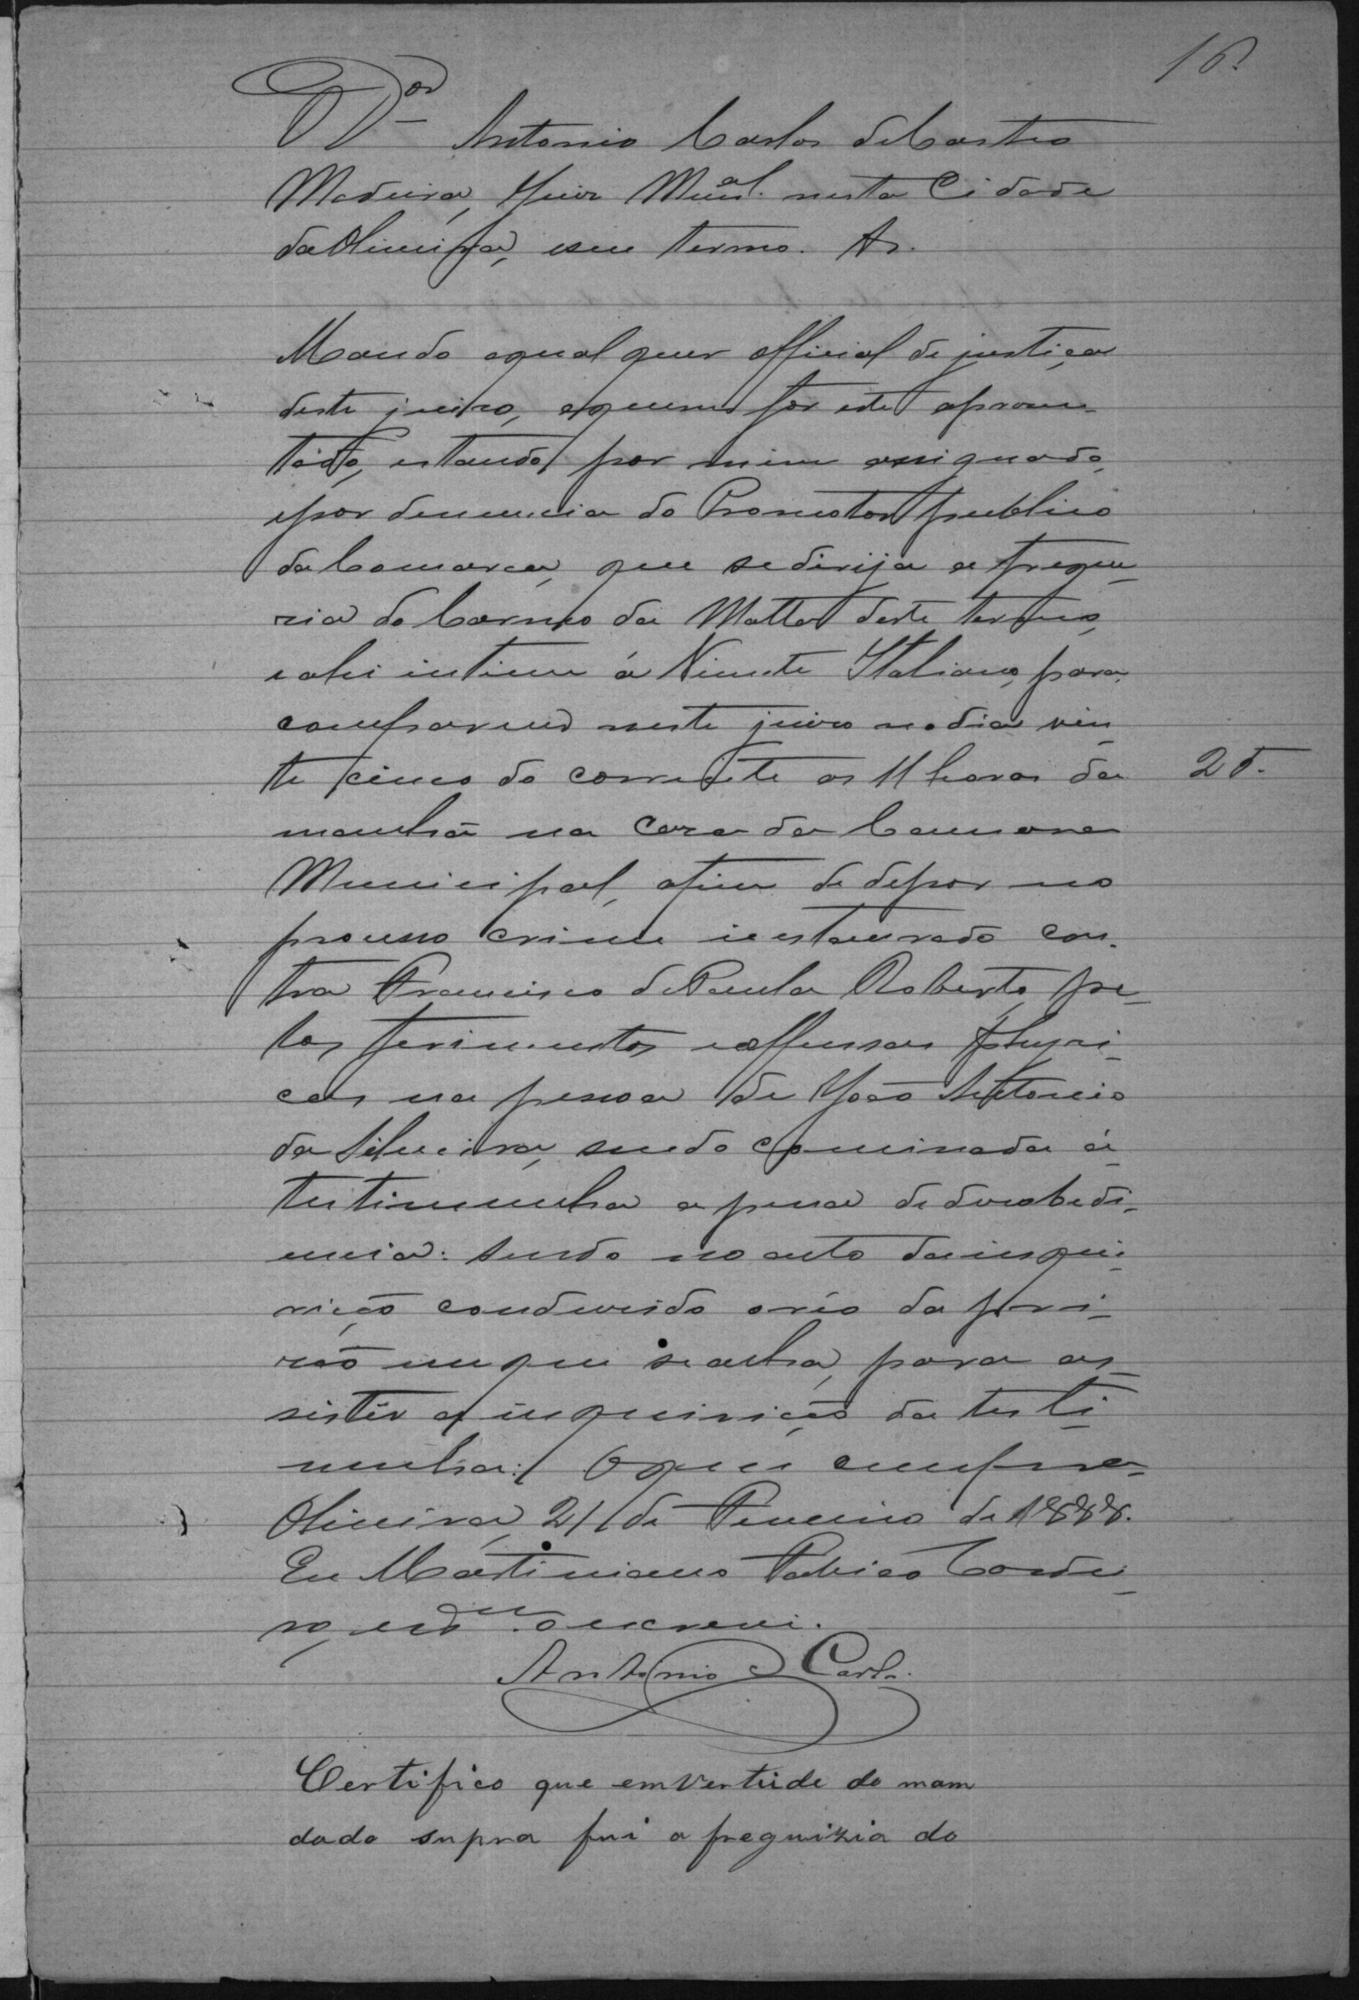 16
O Dor Antonio Carlos de Castro
Madeira, Juiz Mual. nesta Cidade
da Oliveira, e seu termo. &.
Mando a qualquer official de justiça
deste juizo, a quem for este apresen-
tado, estando por mim assignado,
e por denuncia do Promotor publico
da Comarca, que se dirija a fregue-
zia do Carmo da Matta deste termo,
e ahi intime á Vicente Italiano, para
comparecer neste juizo no dia vin-
te cinco do corrente as 11 horas da
25.
manhã na Caza da Camara
Municipal, afim de depor no
processo crime instaurado con-
tra Francisco de Paula Roberto, pe-
los ferimentos e offensas phyzi-
cas na pessoa de João Antonio
da Silveira, sendo cominada á
testimunha a pena de desobedi-
encia: sendo no acto da inqui-
rição conduzido o réo da pri-
zão em que se acha, para as-
sistir a inquirição da testi-
munha: O que cumpra.
Oliveira, 21 de Fevereiro de 1888.
Eu Martiniano Cordei-
ro, o escrevi.
Antonio Carlos
Certifico que em vertude do mam
dado supra fui a freguizia do